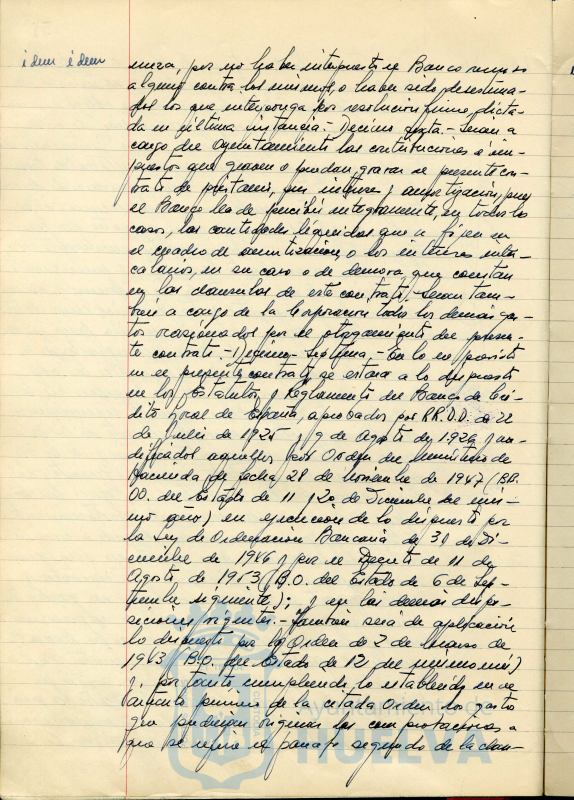 idem idem
mera, por no haber interpuesto el Banco recurso
alguno contra los mismos, o haber sido desestima-
dos los que interponga por resolución firme, dicta-
da en última instancia.- Decimo sexta.- Seran a
cargo del Ayuntamiento las contribuciones e im-
puestos que graven o puedan gravar el presente con-
trato de préstamo, sus intereses y amortización, pues
el Banco ha de percibir integramente, en todos los
casos, las cantidades líquidas que se fijen en
el cuadro de amortización, o los intereses inter-
calarios, en su caso o de demora que constan
en las clausulas de este contrato. Seran tam-
bién a cargo de la Corporación todos los demás gas-
tos ocasionados por el otorgamiento del presen-
te contrato.- Decimo-septima.- En lo no previsto
en el presente contrato, se estara a lo dispuesto
en los Estatutos y Reglamento del Banco de Cré-
dito Local de España, aprobados por RR.DD. de 22
de Julio de 1925 y 9 de Agosto de 1926 y mo-
dificados aquellos por Orden del Ministerio de
Hacienda de fecha 28 de Noviembre de 1947 (BB.
OO. del Estado de 11 y 20 de Diciembre del mis-
mo año) en ejecución de lo dispuesto por
la Ley de Ordenación Bancaria de 31 de Di-
ciembre de 1946 y por el Decreto de 11 de
Agosto de 1953 (B.O. del Estado de 6 de Sep-
tiembre siguiente); y en las demás dispo-
siciones vigentes.- Tambien será de aplicación
lo dispuesto por la Orden de 2 de Marzo de
1963 (B.O. del Estado de 12 del mismo mes)
y, por tanto cumpliendo lo establecido en el
articulo primero de la citada Orden los gastos
que pudieran originar las comprobaciones a
que se refiere el parrafo segundo de la clau-
Ayuntamiento de
HUELVA